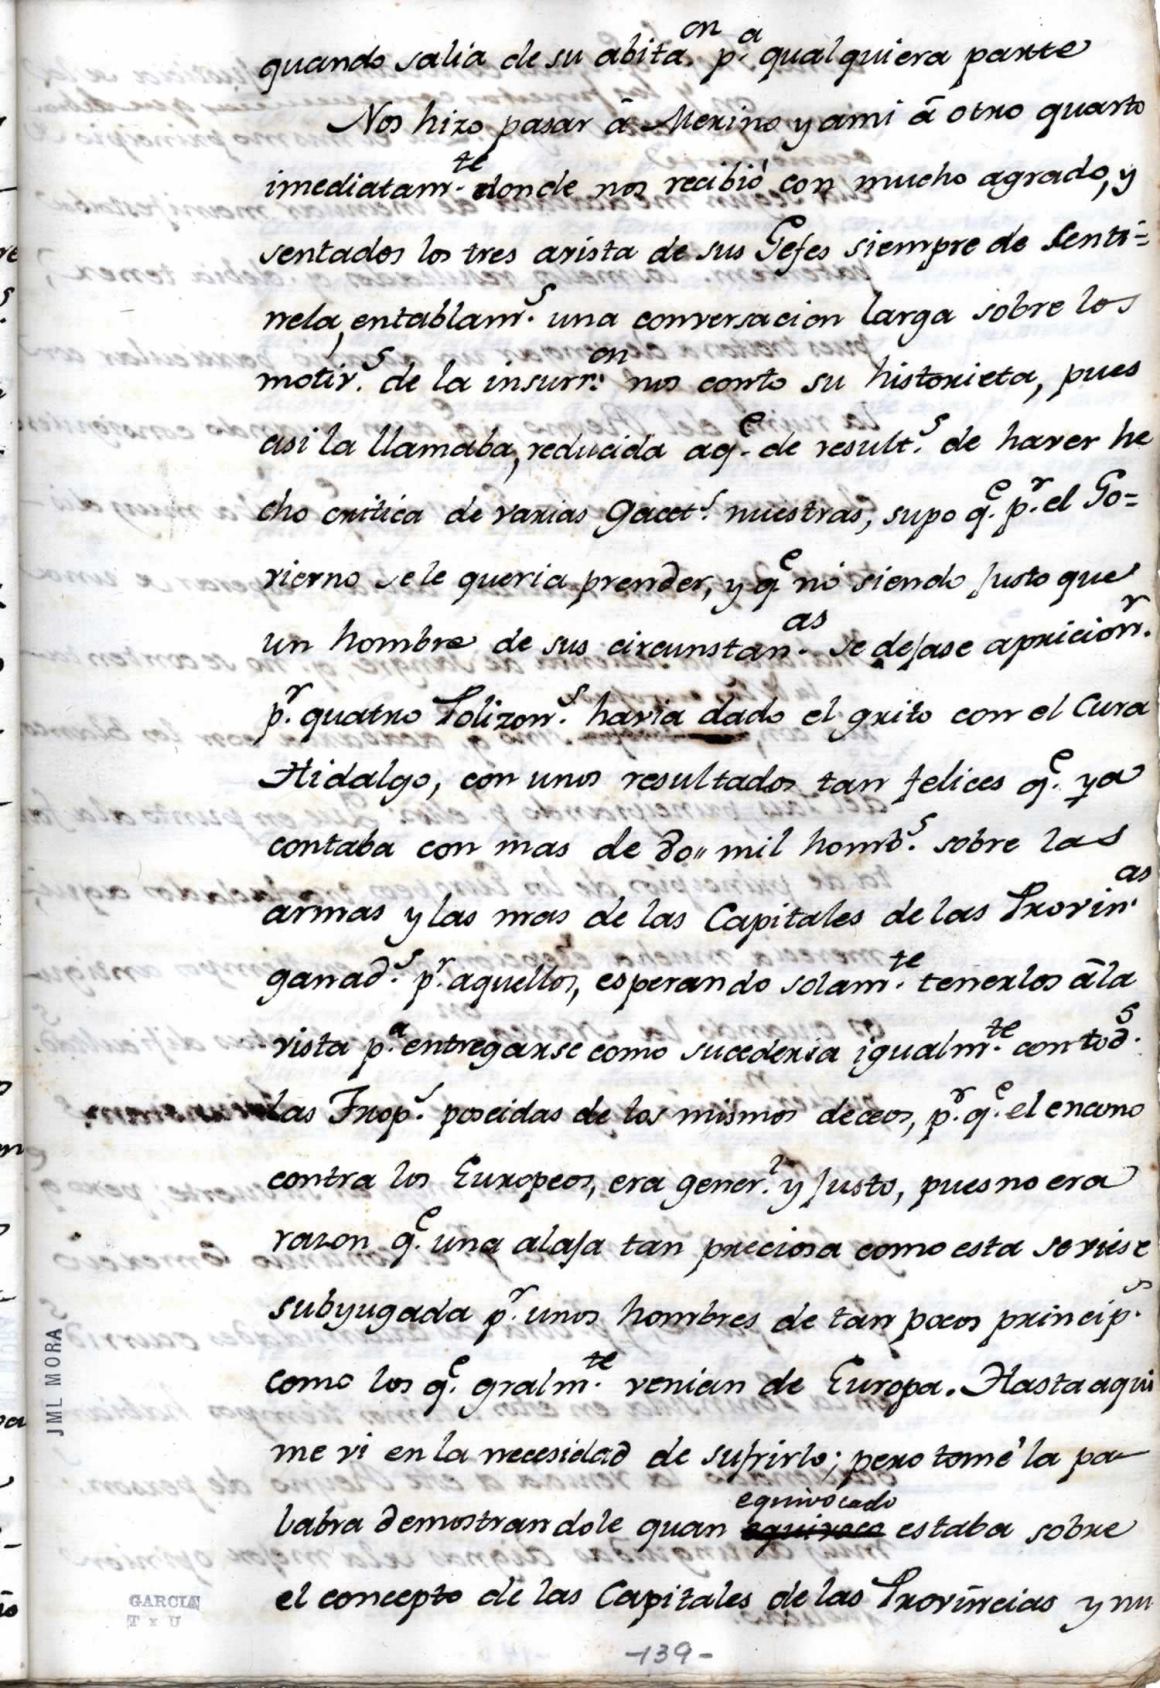 quando salia de su abita.on p.a qualquiera parte
Nos hizo pasar â Merino y ami â otro quarto
imediatam.te donde nos recibió con mucho agrado, y
sentados los tres avista de sus Gefes siempre de Senti=
nela, entablam.s una conversacion larga sobre los
motiv.s de la insurr.on nos conto su historieta, pues
asi la llamaba, reducida aq.e de result.s de haver he
cho critica de varias Gacet.s nuestras, supo q.e p.r el Go=
vierno se le queria prender, y q.e no siendo justo que
un hombre de sus circunstan.as se dejase apricion.r
p.r quatro Polizon.s havia dado el grito con el Cura
Hidalgo, con unos resultados tan felices q.e ya
contaba con mas de 80" mil homb.s sobre las
armas y las mas de las Capitales de las Provin.as
ganad.s p.r aquellos, esperando solam.te tenerlos âla
vista p.a entregarse como sucederia igualm.te con tod.s
las Trop.s poseidas de los mismos deceos, p.r q.e el encono
contra los Europeos, era gener.l y justo, pues no era
razon q.e una alaja tan preciosa como esta se viese
subyugada p.r unos hombres de tan pocos princip.s
como los q.e gralm.te venian de Europa. Hasta aqui
me vi en la necesidad de sufrirlo; pero tomé la pa-
labra demostrandole quan equivoco equivocado estaba sobre
el concepto de las Capitales de las Provincias y nu
JML MORA
GARCIA
T x U
-139-